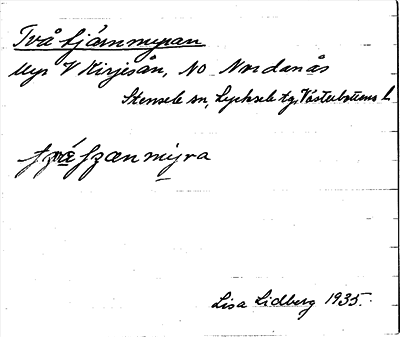 Två tjärnmyran
Myr V Kirjesån, NO Nordanås
Stensele sn, Lycksele tg, Västerbottens l.
tvåtjzænmyra
Lisa Lidberg 1935.